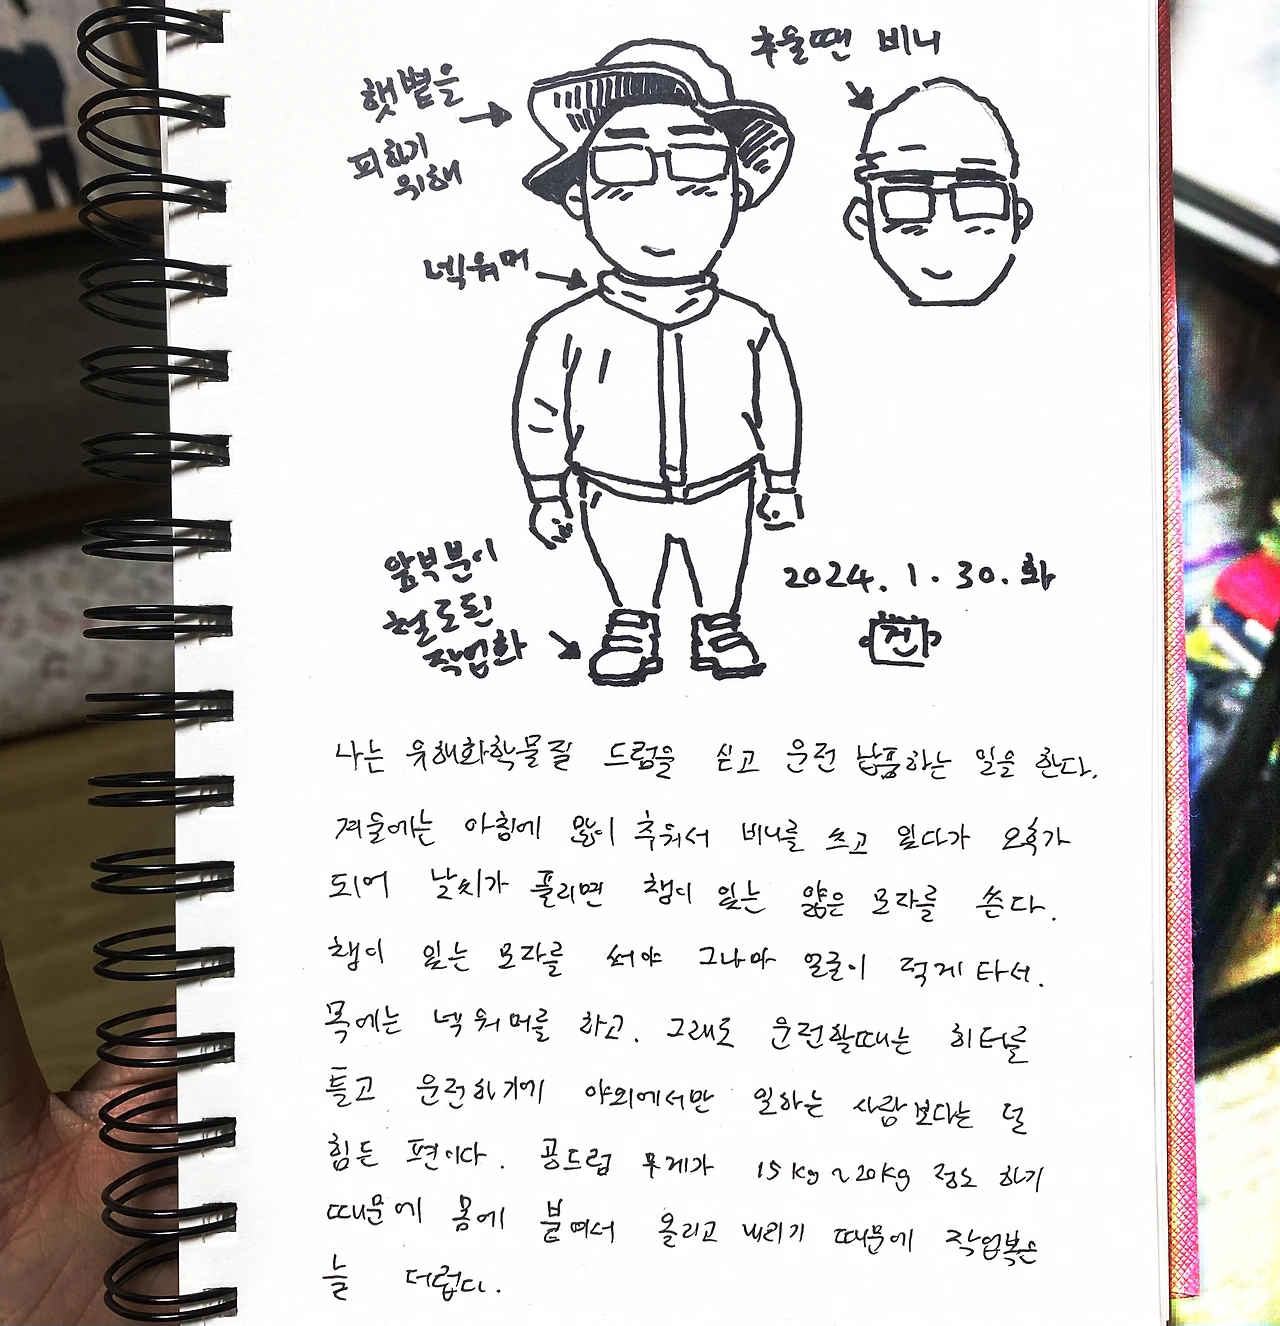 추울땐 비니
햇볕을
피하기
위해
넥워머
앞부분이
철도된
작업화
2024. 1. 30. 화
진
나는 유해화학물질 드럼을 싣고 운전 납품하는 일을 한다.
겨울에는 아침에 많이 추워서 비니를 쓰고 있다가 오후가
되어 날씨가 풀리면 챙이 있는 얇은 모자를 쓴다.
챙이 있는 모자를 써야 그나마 얼굴이 적게 타서.
목에는 넥워머를 하고. 그래도 운전할때는 히터를
틀고 운전하기에 야외에서만 일하는 사람보다는 덜
힘든 편이다. 공드럼 무게가 15kg~20kg 정도 하기
때문에 몸에 붙여서 올리고 내리기 때문에 작업복은
늘 더럽다.